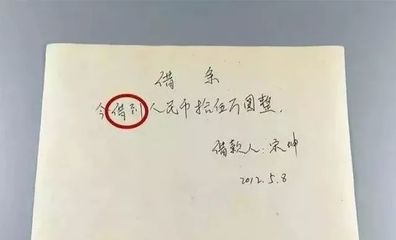 借条
今借到人民币拾伍万圆整,
借款人:宋坤
2012.5.8